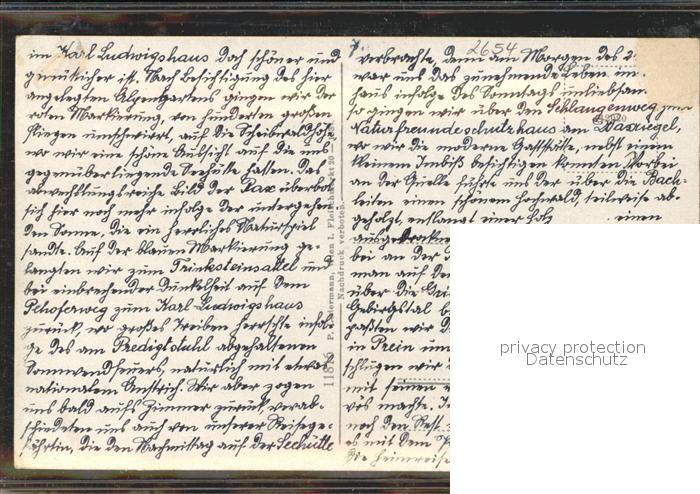 im Karl Ludwigshaus doch schöner und
gemütlicher ist. Nach Besichtigung des hier
angelegten Alpengartens gingen wir der
roten Markierung, von hunderten großen
Fliegen umschwirrt, auf die Scheibwaldhöhe
wo wir eine schöne Aussicht auf die uns
gegenüberliegende Seehütte hatten. Das
abwechslungsreiche Bild der Rax überbot
sich hier noch mehr infolge der untergehen-
den Sonne, die ein herrliches Naturspiel
sandte. Auf der blauen Markierung ge-
langten wir zum Trinksteinsattel und
bei einbrechender Dunkelheit auf dem
Pehoferweg zum Karl Ludwigshaus
zurück, wo großes Treiben herrschte infol-
ge des am Predigtstuhl abgehaltenen
Sonnwendfeuers, natürlich mit etwas
nationalem Anstrich. Wir aber zogen
uns bald aufs Zimmer zurück, verab-
schiedeten uns auch von unserer Reisege-
fährtin, die den Nachmittag auf der Seehütte
P. Ledermann, Wien I. Fleischmarkt 20
Nachdruck verboten.
7. 2654
verbrachte, denn am Morgen des 2
war uns das zunehmende Leben im
haus infolge des Sonntags unliebsam
so gingen wir über den Schlangenweg zum
Naturfreundeschutzhaus am Waxriegel,
wo wir die moderne Gaststätte, nebst einem
kleinem Imbiß besichtigen konnten. Vorbei
an der Quelle führte uns der über die Bach-
leiten einen schönem Hochwald, teilweise ab-
geholzt, entlangt einer einen
bei an der
man auf de
über die
Gebirgstal
paßten wir
in Prein un
schlugen wir
mit seinen
vös machte.
noch den Rest
es mit dem
die Heimreise
privacy protection
Datenschutz